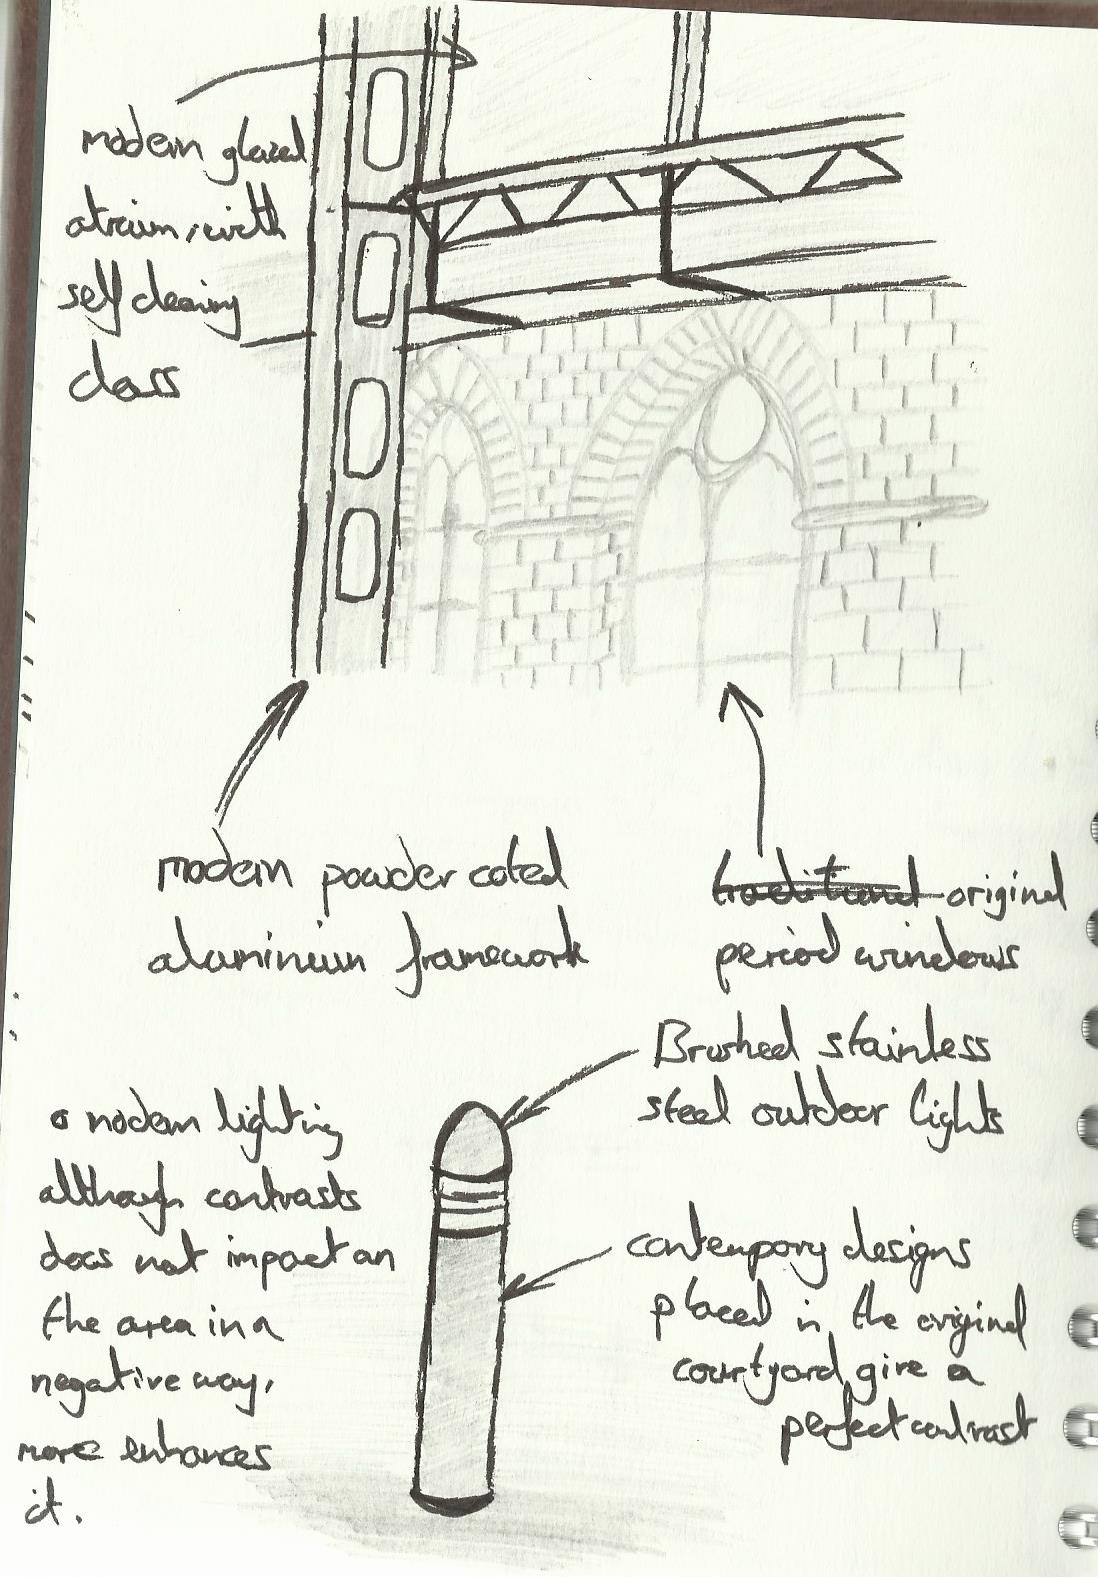 modern glazed
atrium, with
self cleaning
class
modern powder coted
aluminium framework
traditional original
period windows
Brushed stainless
steel outdoor lights
a modern lighting
although contrasts
does not impact on
the area in a
negative way,
more enhances
it.
contempory designs
placed in the original
courtyard give a
perfect contrast